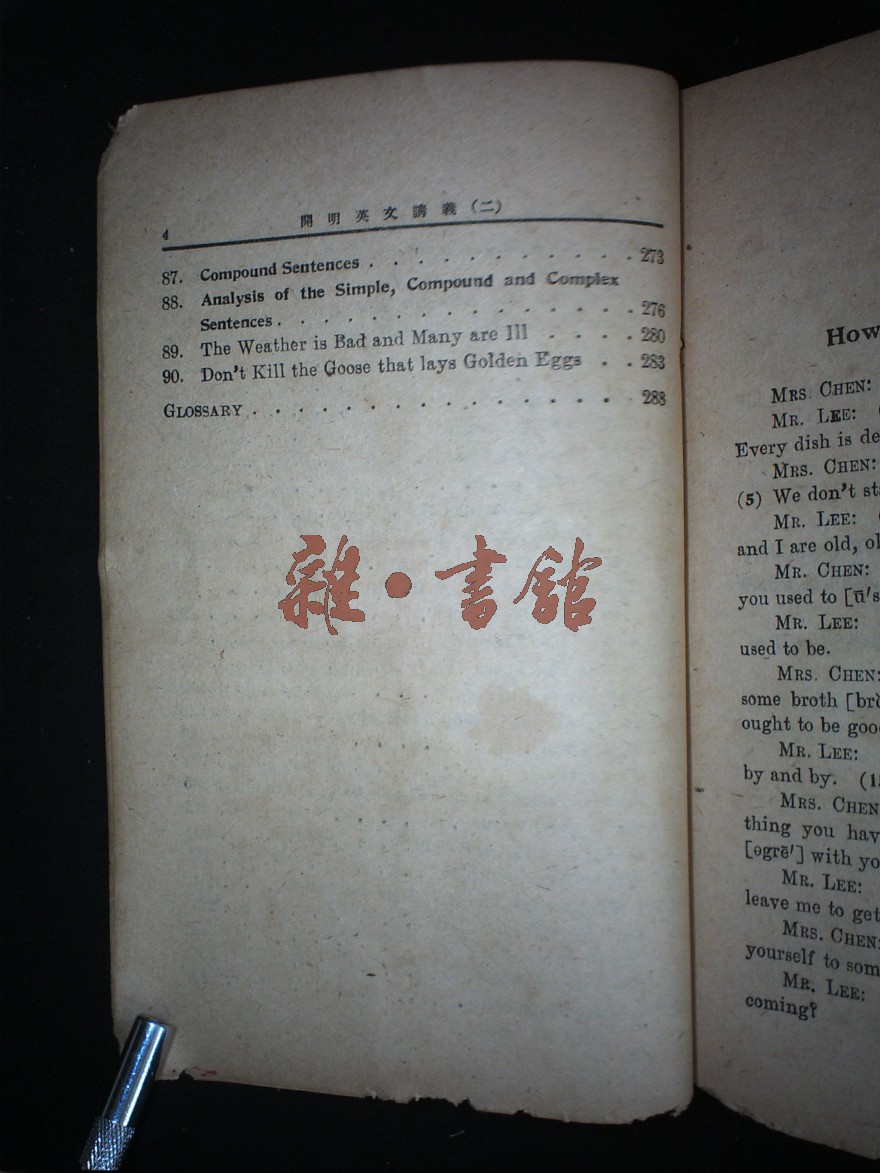 4 開明英文講義(二)
87. Compound Sentences . . . . . . . . . . . 273
88. Analysis of the Simple, Compound and Complex
Sentences . . . . . . . . . . . . . . . 276
89. The Weather is Bad and Many are Ill . . . . 280
90. Don't Kill the Goose that lays Golden Eggs . . 283
GLOSSARY . . . . . . . . . . . . . . 288
雜·書館
How
MRS. CHEN:
MR. LEE:
Every dish is de
MRS. CHEN:
(5) We don't st
MR. LEE:
and I are old, ol
MR. CHEN:
you used to [ū's
MR. LEE:
used to be.
MRS. CHEN:
some broth [br
ought to be goo
MR. LEE:
by and by. (1
MRS. CHEN
thing you hav
[ɵgrē'] with yo
MR. LEE:
leave me to get
MRS. CHEN:
yourself to som
MR. LEE:
coming?